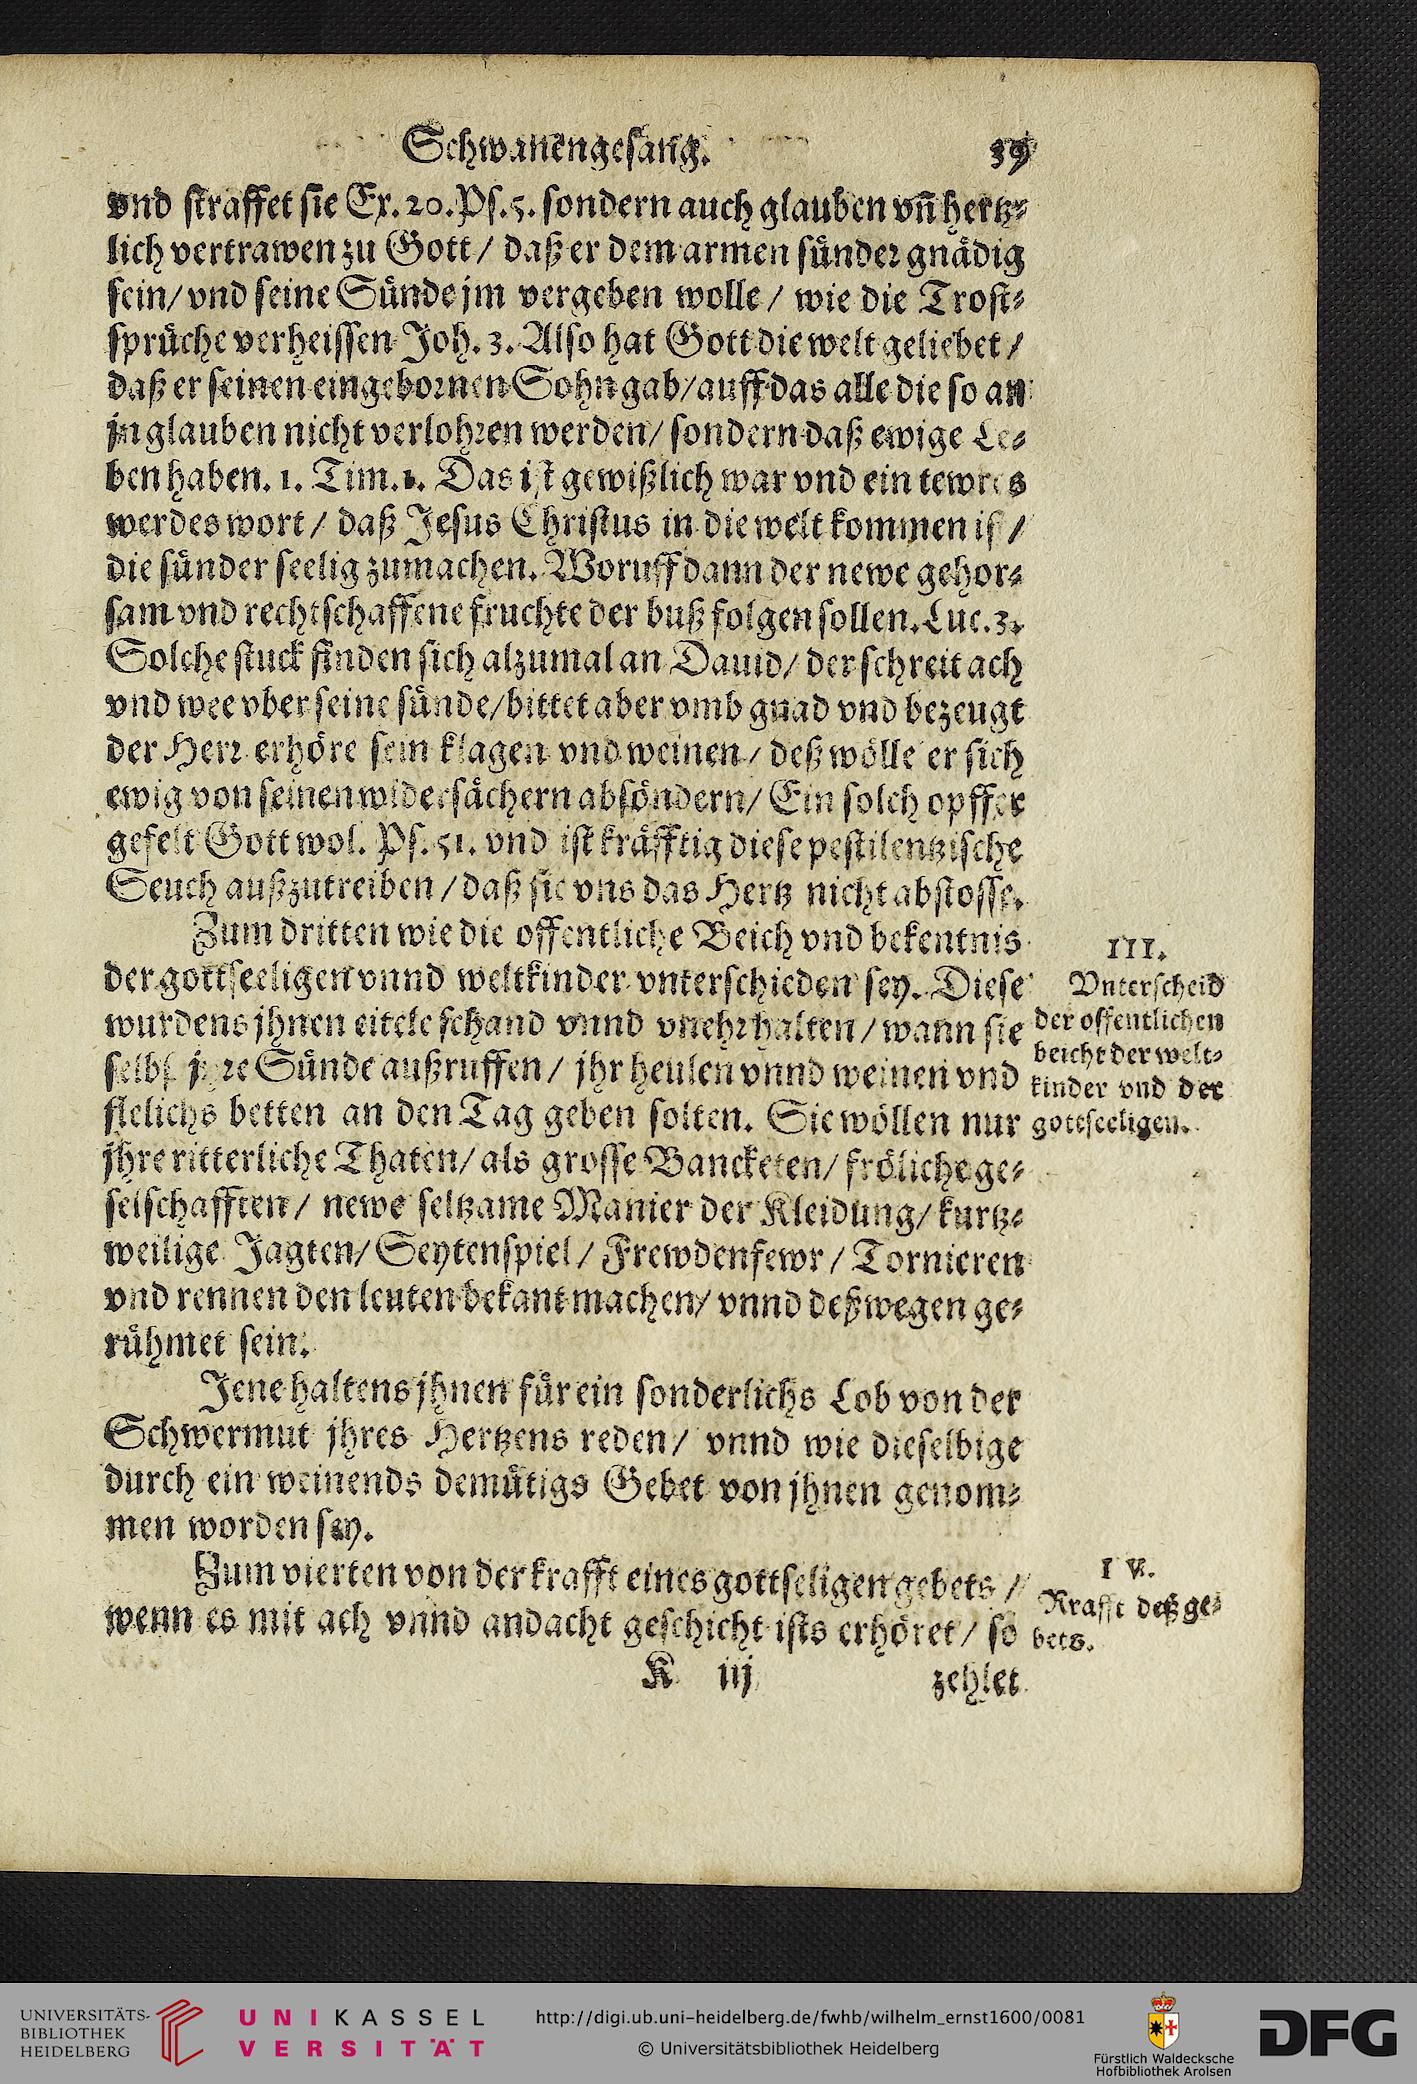 Schwanengesang. 39
vnd straffet sie Ex. 20. Ps. 5. sondern auch glauben vn̄ hertz⸗
lich vertrawen zu Gott / daß er dem armen sünder gnädig
sein / vnd seine Sünde jm vergeben wolle / wie die Trost⸗
sprüche verheissen Joh. 3. Also hat Gott die welt geliebet /
daß er seinen eingebornen Sohn gab / auff das alle die so an
jn glauben nicht verlohren werden / sondern daß ewige Le⸗
ben haben. 1. Tim. 1. Das ist gewißlich war vnd ein tewres
werdes wort / daß Jesus Christus in die welt kommen ist /
die sünder seelig zumachen. Woruff dann der newe gehor⸗
sam vnd rechtschaffene fruchte der buß folgen sollen. Luc. 3.
Solche stuck finden sich alzumal an Dauid / der schreit ach
vnd wee vber seine sünde / bittet aber vmb gnad vnd bezeugt
der Herr erhöre sein klagen vnd weinen / deß wölle er sich
ewig von seinen widersächern absöndern / Ein solch opffer
gefelt Gott wol. Ps. 51. vnd ist kräfftig diese pestilentzische
Seuch außzutreiben / daß sie vns das Hertz nicht abstosse.
Zum dritten wie die offentliche Beich vnd bekentnis
der gottseeligen vnnd weltkinder vnterschieden sey. Diese
wurdens jhnen eitele schand vnnd vnehr halten / wann sie
selbst jhre Sünde außruffen / jhr heulen vnnd weinen vnd
flelichs betten an den Tag geben solten. Sie wöllen nur
jhre ritterliche Thaten / als grosse Bancketen / fröliche ge⸗
selschafften / newe seltzame Manier der Kleidung / kurtz⸗
weilige Jagten / Seytenspiel / Frewdenfewr / Tornieren
vnd rennen den leuten bekant machen / vnnd deßwegen ge⸗
rühmet sein.
Jene haltens jhnen für ein sonderlichs Lob von der
Schwermut jhres Hertzens reden / vnnd wie dieselbige
durch ein weinends demütigs Gebet von jhnen genom⸗
men worden sey.
Zum vierten von der krafft eines gottseligen gebets /
wenn es mit ach vnnd andacht geschicht ists erhöret / so
K iij zehlet
III.
Vnterscheid
der offentlichen
beicht der welt⸗
kinder vnd der
gottseeligen.
IV.
Krafft deß ge⸗
bets.
UNIVERSITÄTS-
BIBLIOTHEK
HEIDELBERG
UNIKASSEL
VERSITÄT
http://digi.ub.uni-heidelberg.de/fwhb/wilhelm_ernst1600/0081
© Universitätsbibliothek Heidelberg
Fürstlich Waldecksche
Hofbibliothek Arolsen
DFG